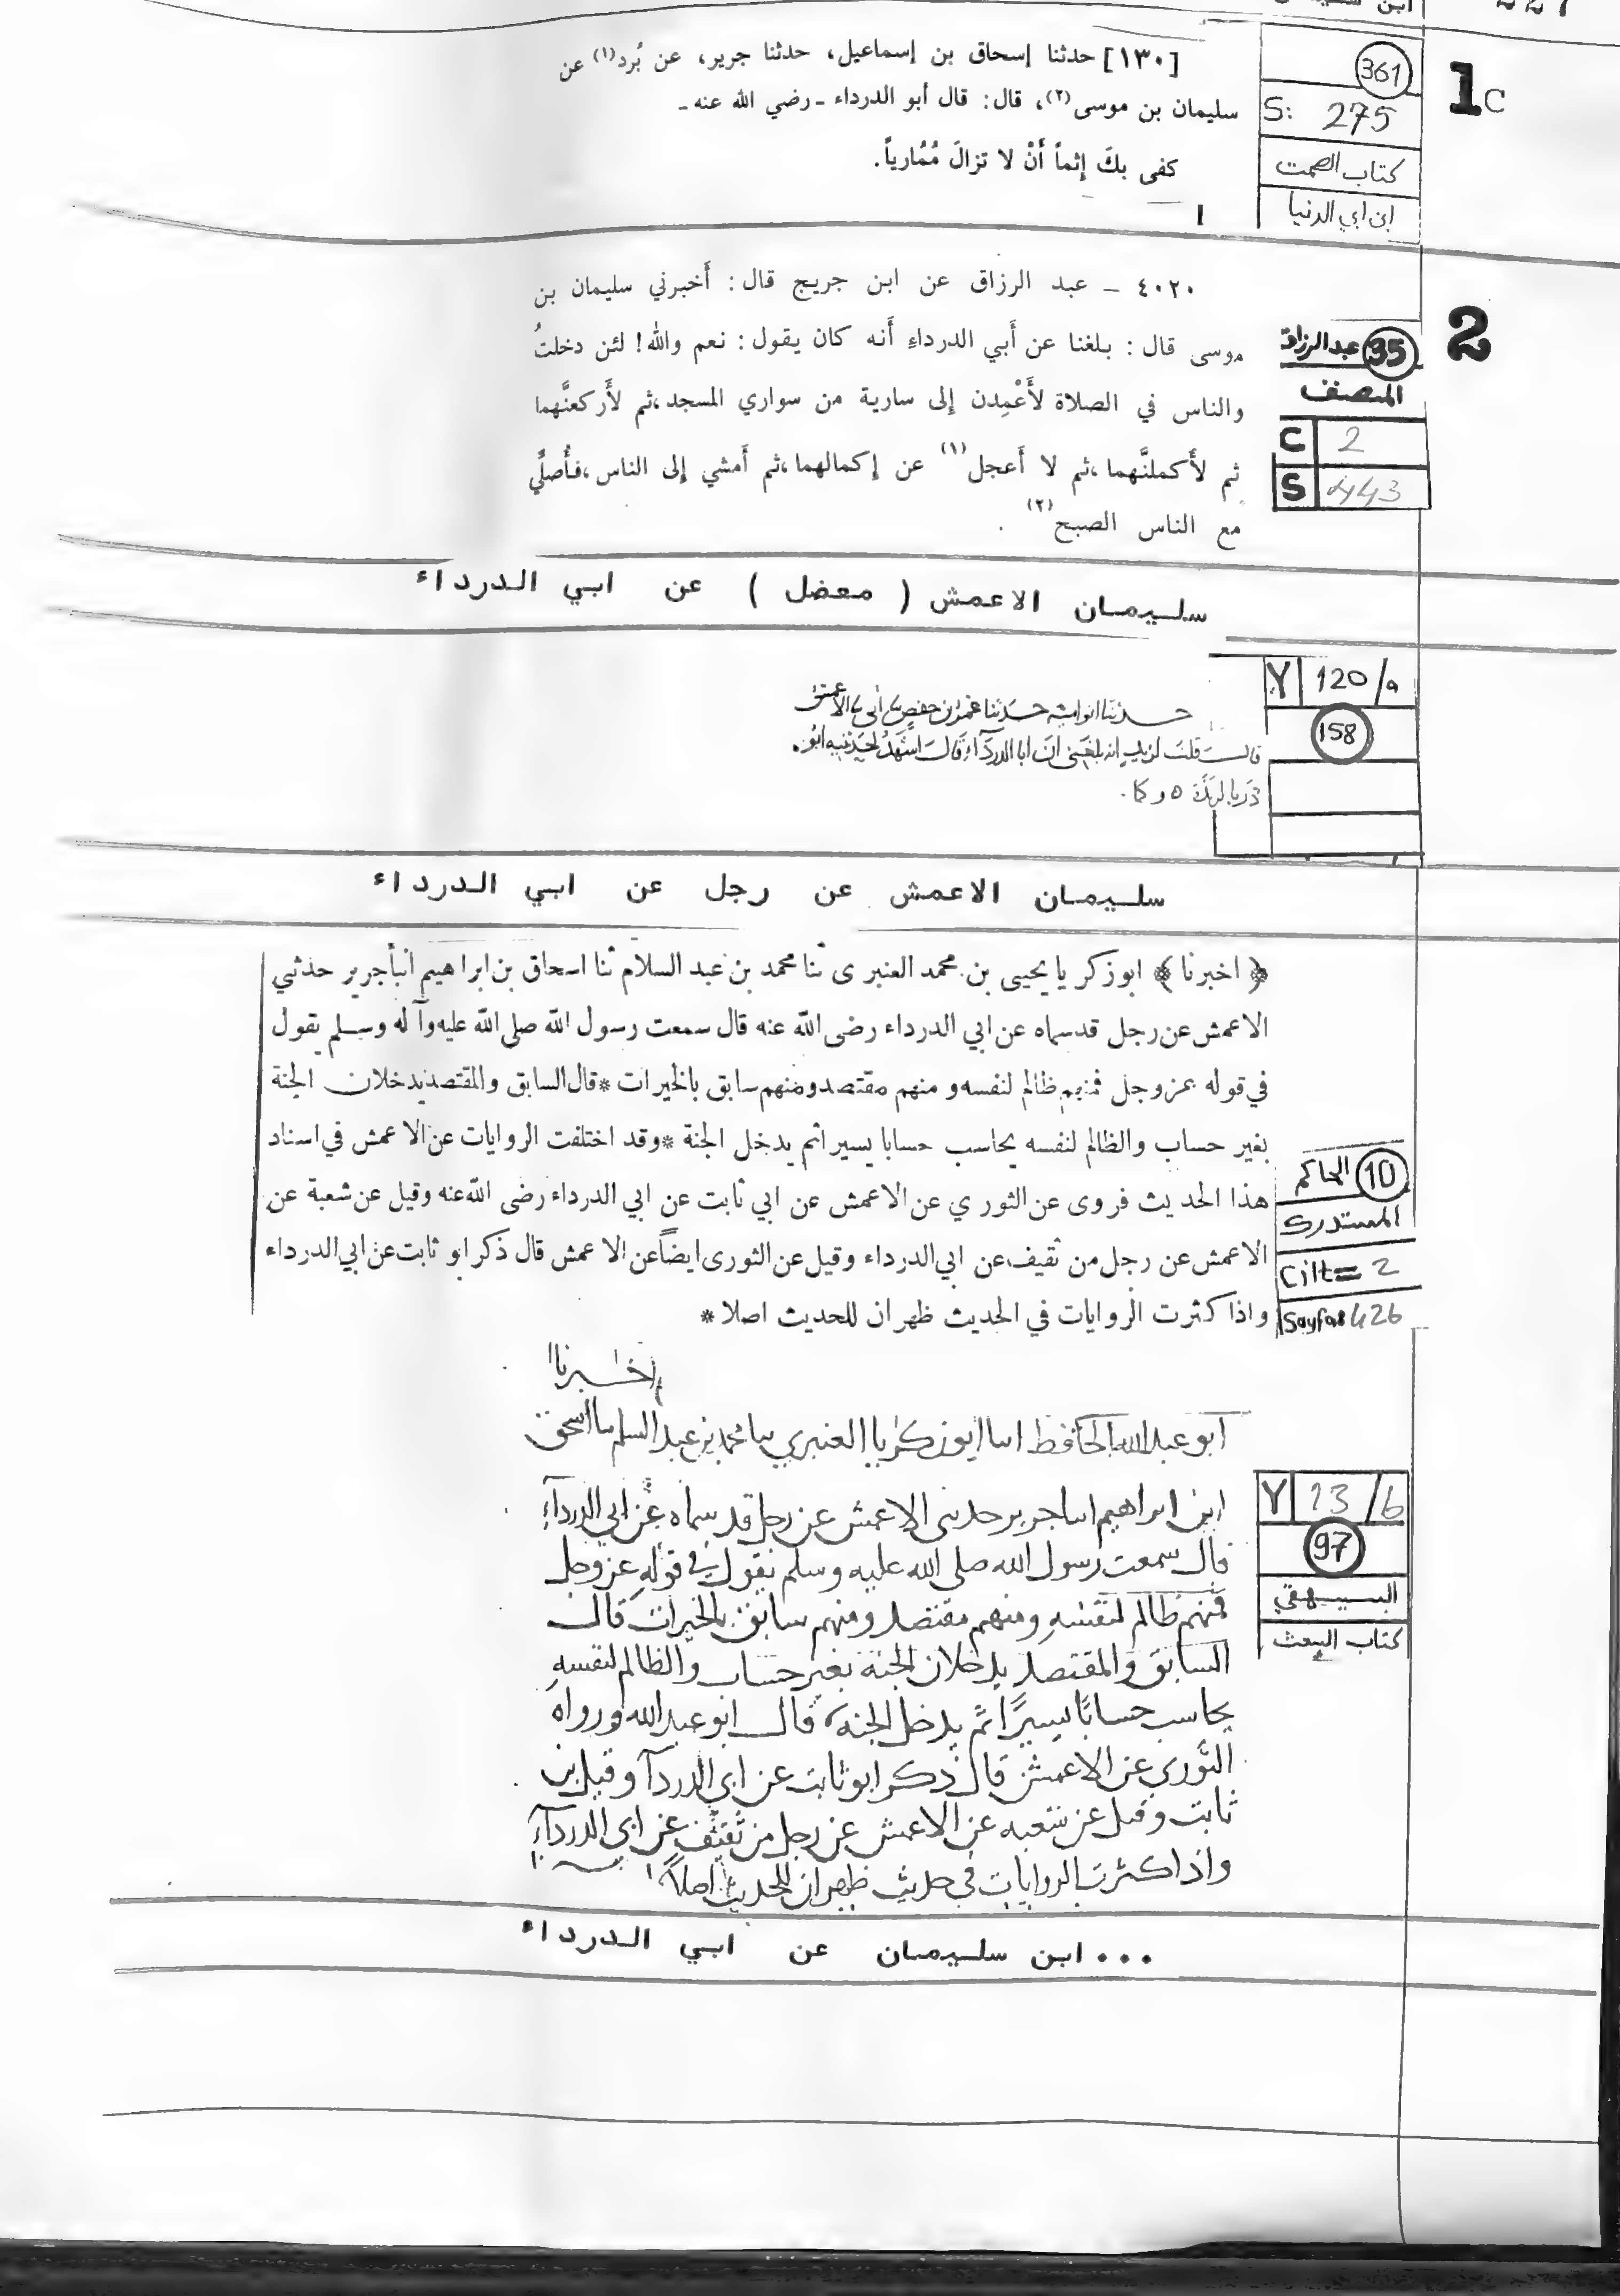 [١٣٠] حدثنا إسحاق بن إسماعيل، حدثنا جرير، عن بُرد(١) عن
سليمان بن موسى(٢)، قال: قال أبو الدرداء ـ رضي الله عنه ـ
كفى بكَ إثماً أَنْ لا تزالَ مُمُارياً.
361
S: 275
كتاب الصمت
ابن ابي الدنيا
1c
٤٠٢٠ ـ عبد الرزاق عن ابن جريج قال: أَخبرني سليمان بن
موسى قال: بلغنا عن أَبي الدرداءِ أَنه كان يقول: نعم والله! لئن دخلتُ
والناس في الصلاة لأَعْمِدن إلى سارية من سواري المسجد، ثم لأَركعنَّهما
ثم لأَكملنَّهما، ثم لا أَعجل(١) عن إكمالهما، ثم أَمشي إلى الناس، فأُصلِّي
مع الناس الصبح(٢).
35 عبد الرزاق
المصنف
C 2
S 443
2
سليمان الاعمش ( معضل ) عن ابي الدرداء
Y 120/a
158
حدثنا ابو امية حدثنا عمر بن حفص ثنا أبي ثنا الأعمش
قالت قلت لزيد انه بلغني ان ابا الدرداء قال اشهد لحدثنيه ابو
ذر بالربذة
سليمان الاعمش عن رجل عن ابي الدرداء
﴿ اخبرنا ﴾ ابو زكريا يحيى بن محمد العنبرى ثنا محمد بن عبد السلام ثنا اسحاق بن ابراهيم انبأ جرير حدثني
الاعمش عن رجل قد سماه عن ابي الدرداء رضى الله عنه قال سمعت رسول الله صلى الله عليه وآله وسلم يقول
في قوله عز وجل فمنهم ظالم لنفسه و منهم مقتصد ومنهم سابق بالخيرات * قال السابق والمقتصد يدخلان الجنة
بغير حساب والظالم لنفسه يحاسب حسابا يسيرا ثم يدخل الجنة * وقد اختلفت الروايات عن الاعمش في اسناد
هذا الحديث فروى عن الثوري عن الاعمش عن ابي ثابت عن ابي الدرداء رضى الله عنه وقيل عن شعبة عن
الاعمش عن رجل من ثقيف عن ابي الدرداء وقيل عن الثورى ايضاً عن الاعمش قال ذكر ابو ثابت عن ابي الدرداء
واذا كثرت الروايات في الحديث ظهر ان للحديث اصلا *
10 الحاكم
المستدرك
Cilt= 2
Sayfa: 426
اخبرنا
ابو عبد الله الحافظ انبا ابو زكريا العنبري ثنا محمد بن عبد السلم ثنا اسحق
ابن ابراهيم انبا جرير حدثنى الاعمش عن رجل قد سماه عن ابي الدرداء
قال سمعت رسول الله صلى الله عليه وسلم يقول في قوله عز وجل
فمنهم ظالم لنفسه ومنهم مقتصد ومنهم سابق بالخيرات قال
السابق والمقتصد يدخلان الجنة بغير حساب والظالم لنفسه
يحاسب حسابًا يسيرًا ثم يدخل الجنة قال ابو عبد الله ورواه
الثوري عن الاعمش قال ذكر ابو ثابت عن ابي الدردآ وقيل بن
ثابت وقيل عن شعبه عن الاعمش عن رجل من ثقيف عن ابي الدرداء
واذا كثرت الروايات في حديث ظهر ان للحديث اصلاً
Y 13/b
97
البيهقي
كتاب البعث
... ابن سليمان عن ابي الدرداء